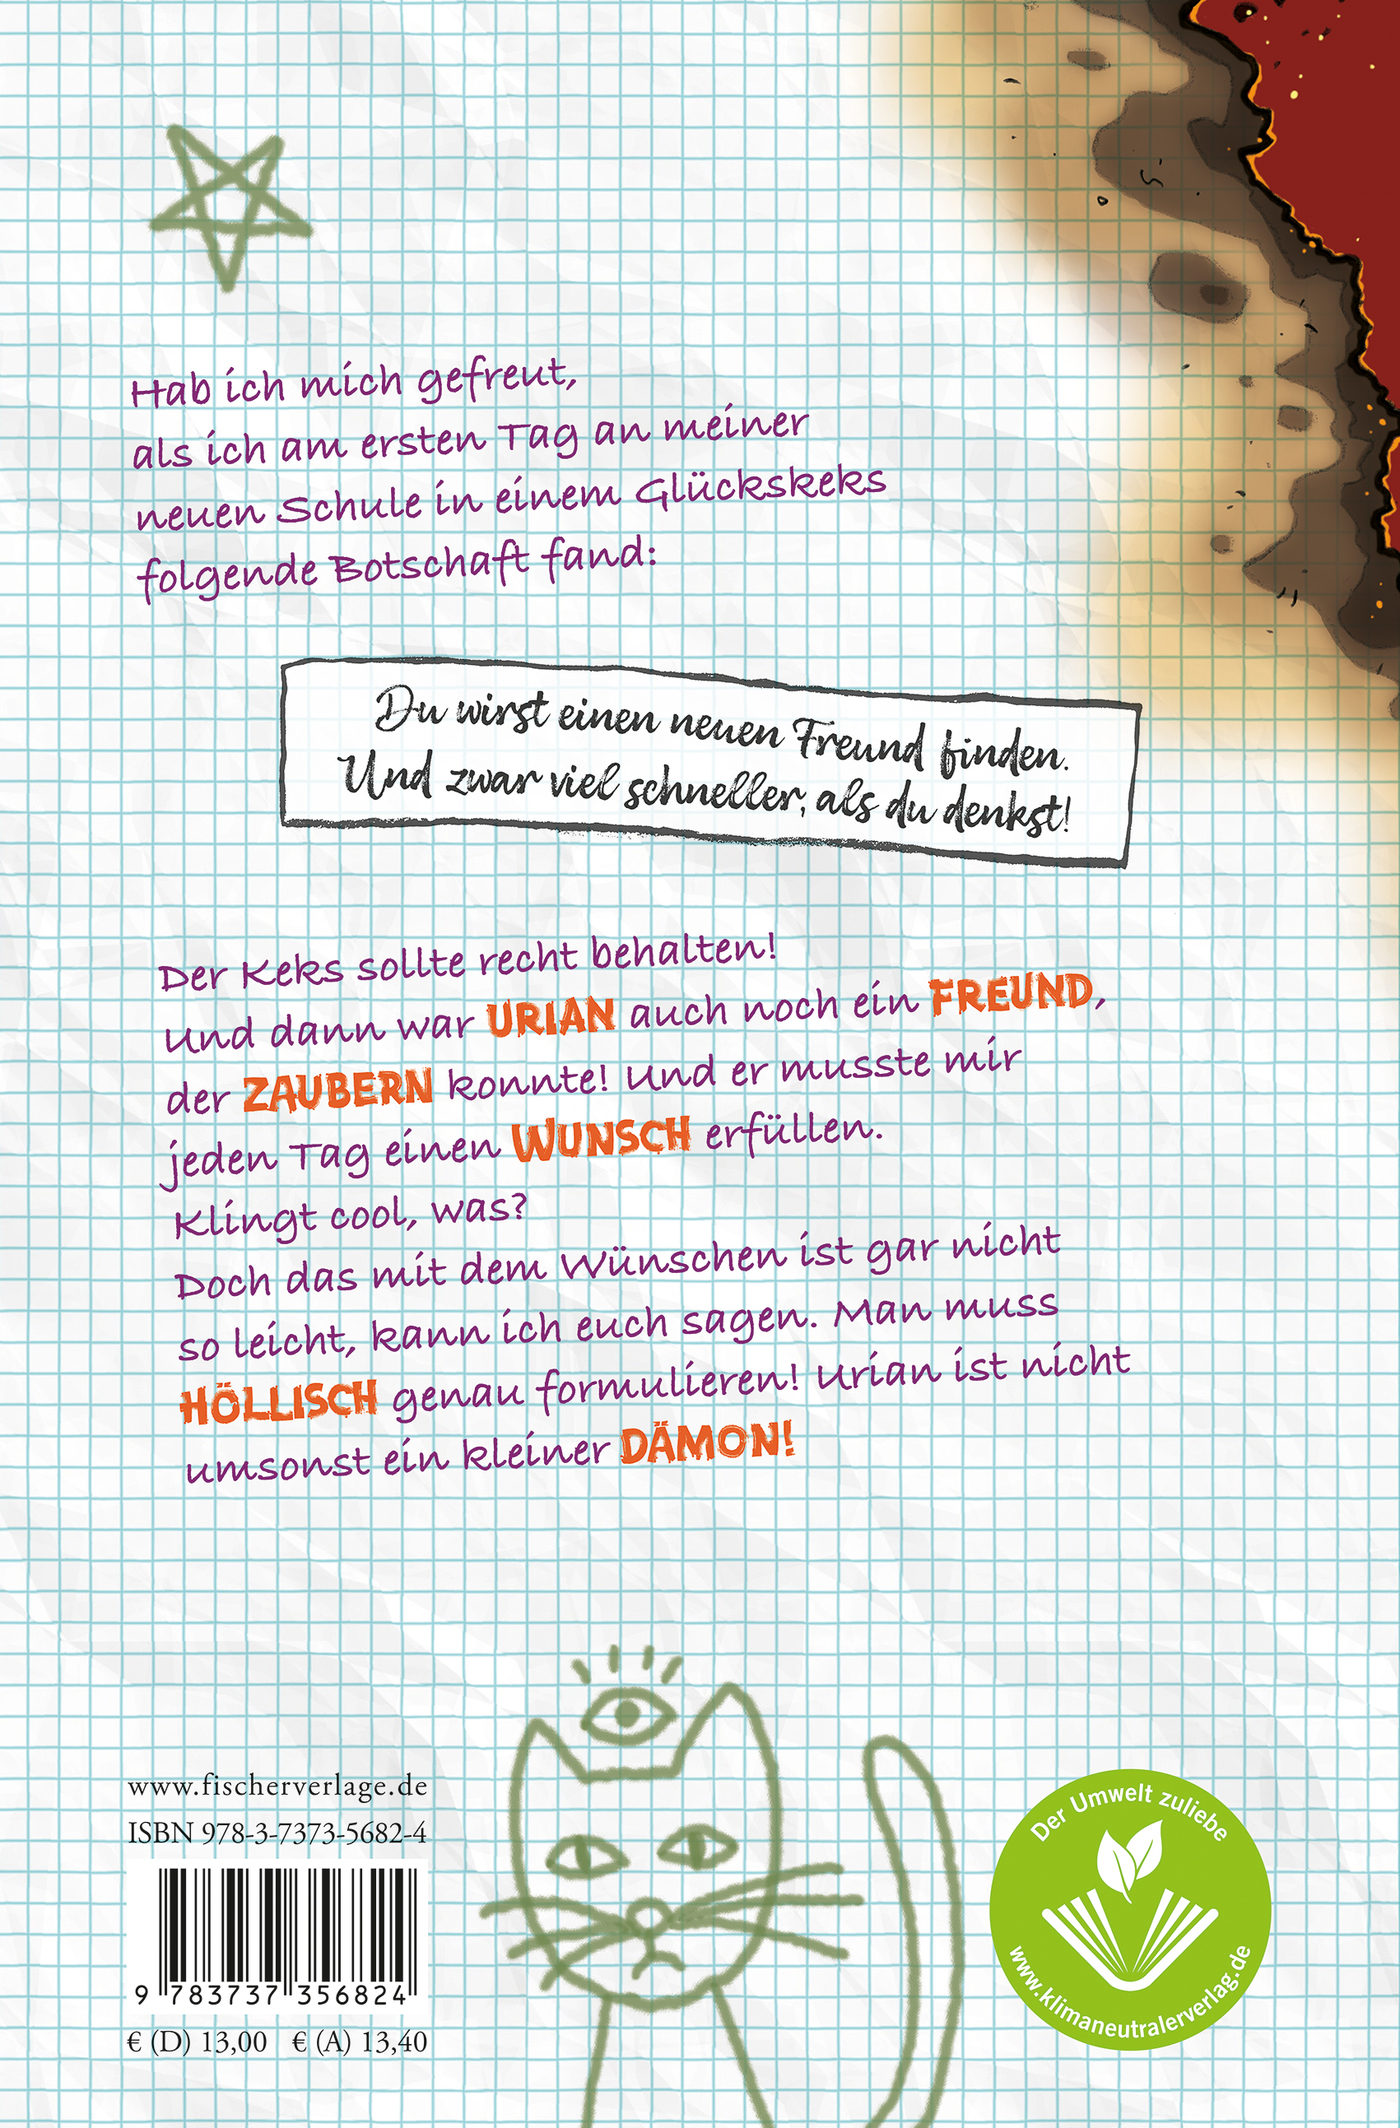 Hab ich mich gefreut,
als ich am ersten Tag an meiner
neuen Schule in einem Glückskeks
folgende Botschaft fand:
Du wirst einen neuen Freund finden.
Und zwar viel schneller, als du denkst!
Der Keks sollte recht behalten!
Und dann war URIAN auch noch ein FREUND,
der ZAUBERN konnte! Und er musste mir
jeden Tag einen WUNSCH erfüllen.
Klingt cool, was?
Doch das mit dem Wünschen ist gar nicht
so leicht, kann ich euch sagen. Man muss
HÖLLISCH genau formulieren! Urian ist nicht
umsonst ein kleiner DÄMON!
www.fischerverlage.de
ISBN 978-3-7373-5682-4
9 783737 356824
€ (D) 13,00 € (A) 13,40
Der Umwelt zuliebe
www.klimaneutralerverlag.de